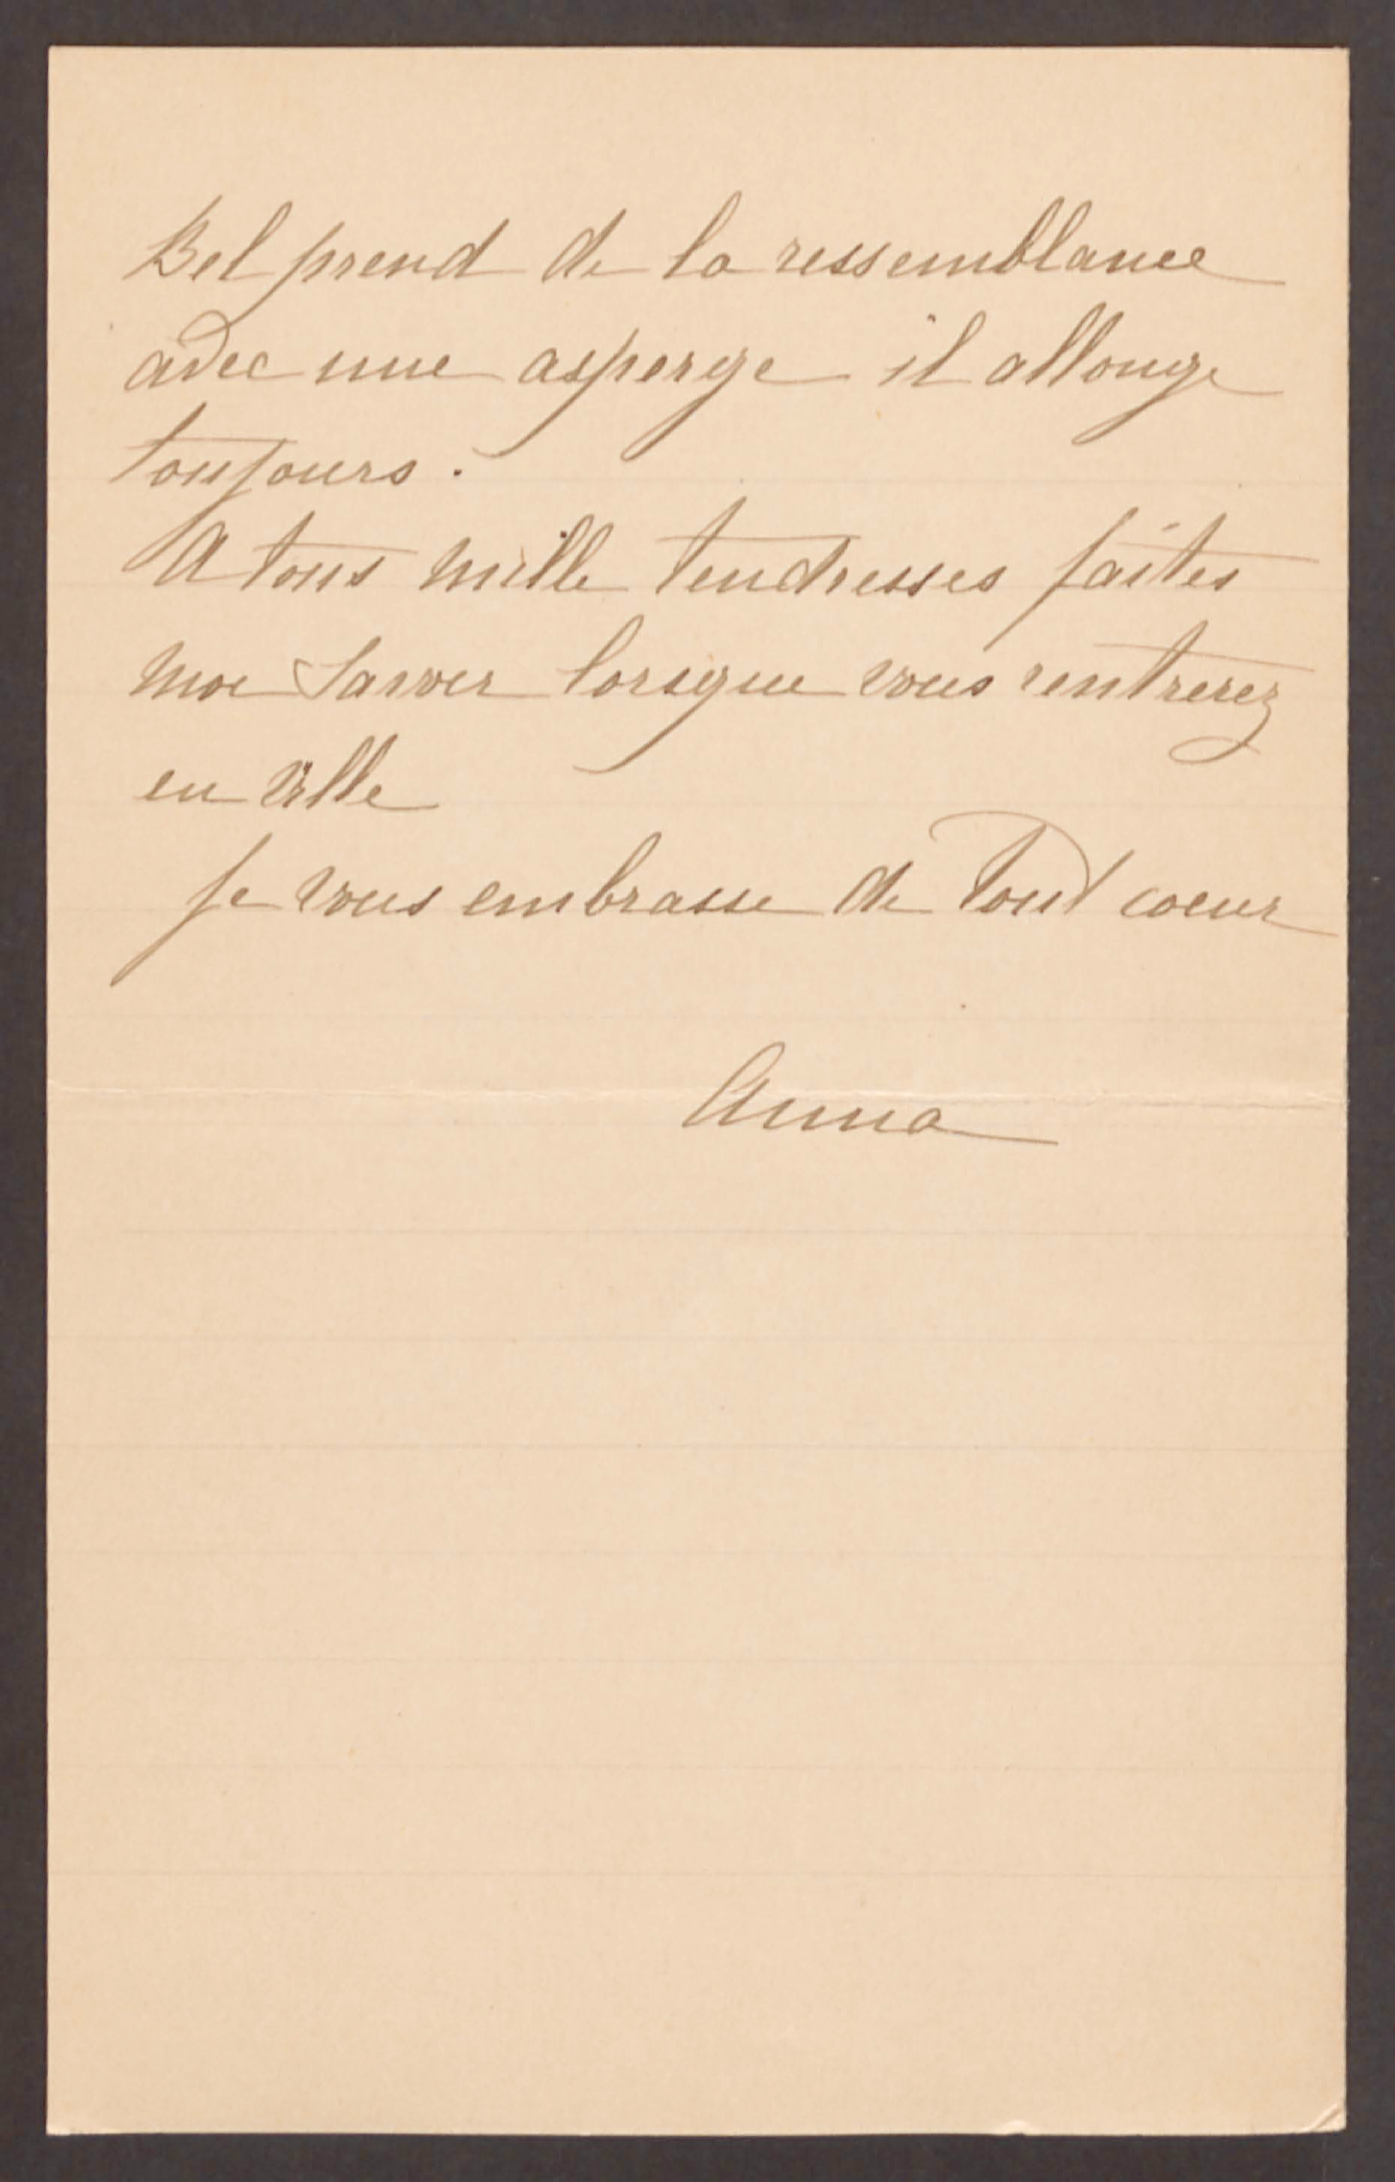 Bel prend de la ressemblance
avec une asperge il allonge
toujours.
A tous mille tendresses faites
moi savoir lorsque vous rentrerez
en ville
Je vous embrasse de tout coeur
Anna